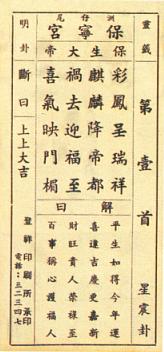 靈籤 第壹首 星震卦
洲仔尾
保寧宮
保生大帝
彩鳳呈瑞祥
麒麟降帝都
禍去迎福至
喜氣映門楣
解曰
平生如得今年運
喜逢吉慶更嘉新
財旺貴人榮祿至
百事稱心護福人
明卦斷曰 上上大吉
登祥印刷所承印
電話：三二三四七